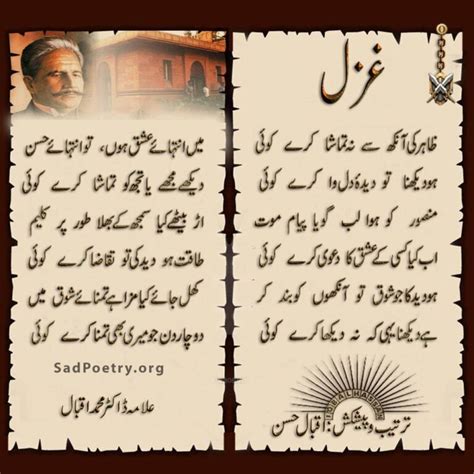 غزل
ظاہر کی آنکھ سے نہ تماشا کرے کوئی
ہو دیکھنا تو دیدۂ دل وا کرے کوئی
منصور کو ہوا لب گویا پیام موت
اب کیا کسی کے عشق کا دعویٰ کرے کوئی
ہو دید کا جو شوق تو آنکھوں کو بند کر
ہے دیکھنا یہی کہ نہ دیکھا کرے کوئی
IQBALHASSAN
ترتیب و پیشکش: اقبال حسن
میں انتہائے عشق ہوں، تو انتہائے حسن
دیکھے مجھے یا تجھ کو تماشا کرے کوئی
اڑ بیٹھے کیا سمجھ کے بھلا طور پر کلیم
طاقت ہو دید کی تو تقاضا کرے کوئی
کھل جائے کیا مزا ہے تمنائے شوق میں
دو چار دن جو میری بھی تمنا کرے کوئی
SadPoetry.org
علامہ ڈاکٹر محمد اقبال